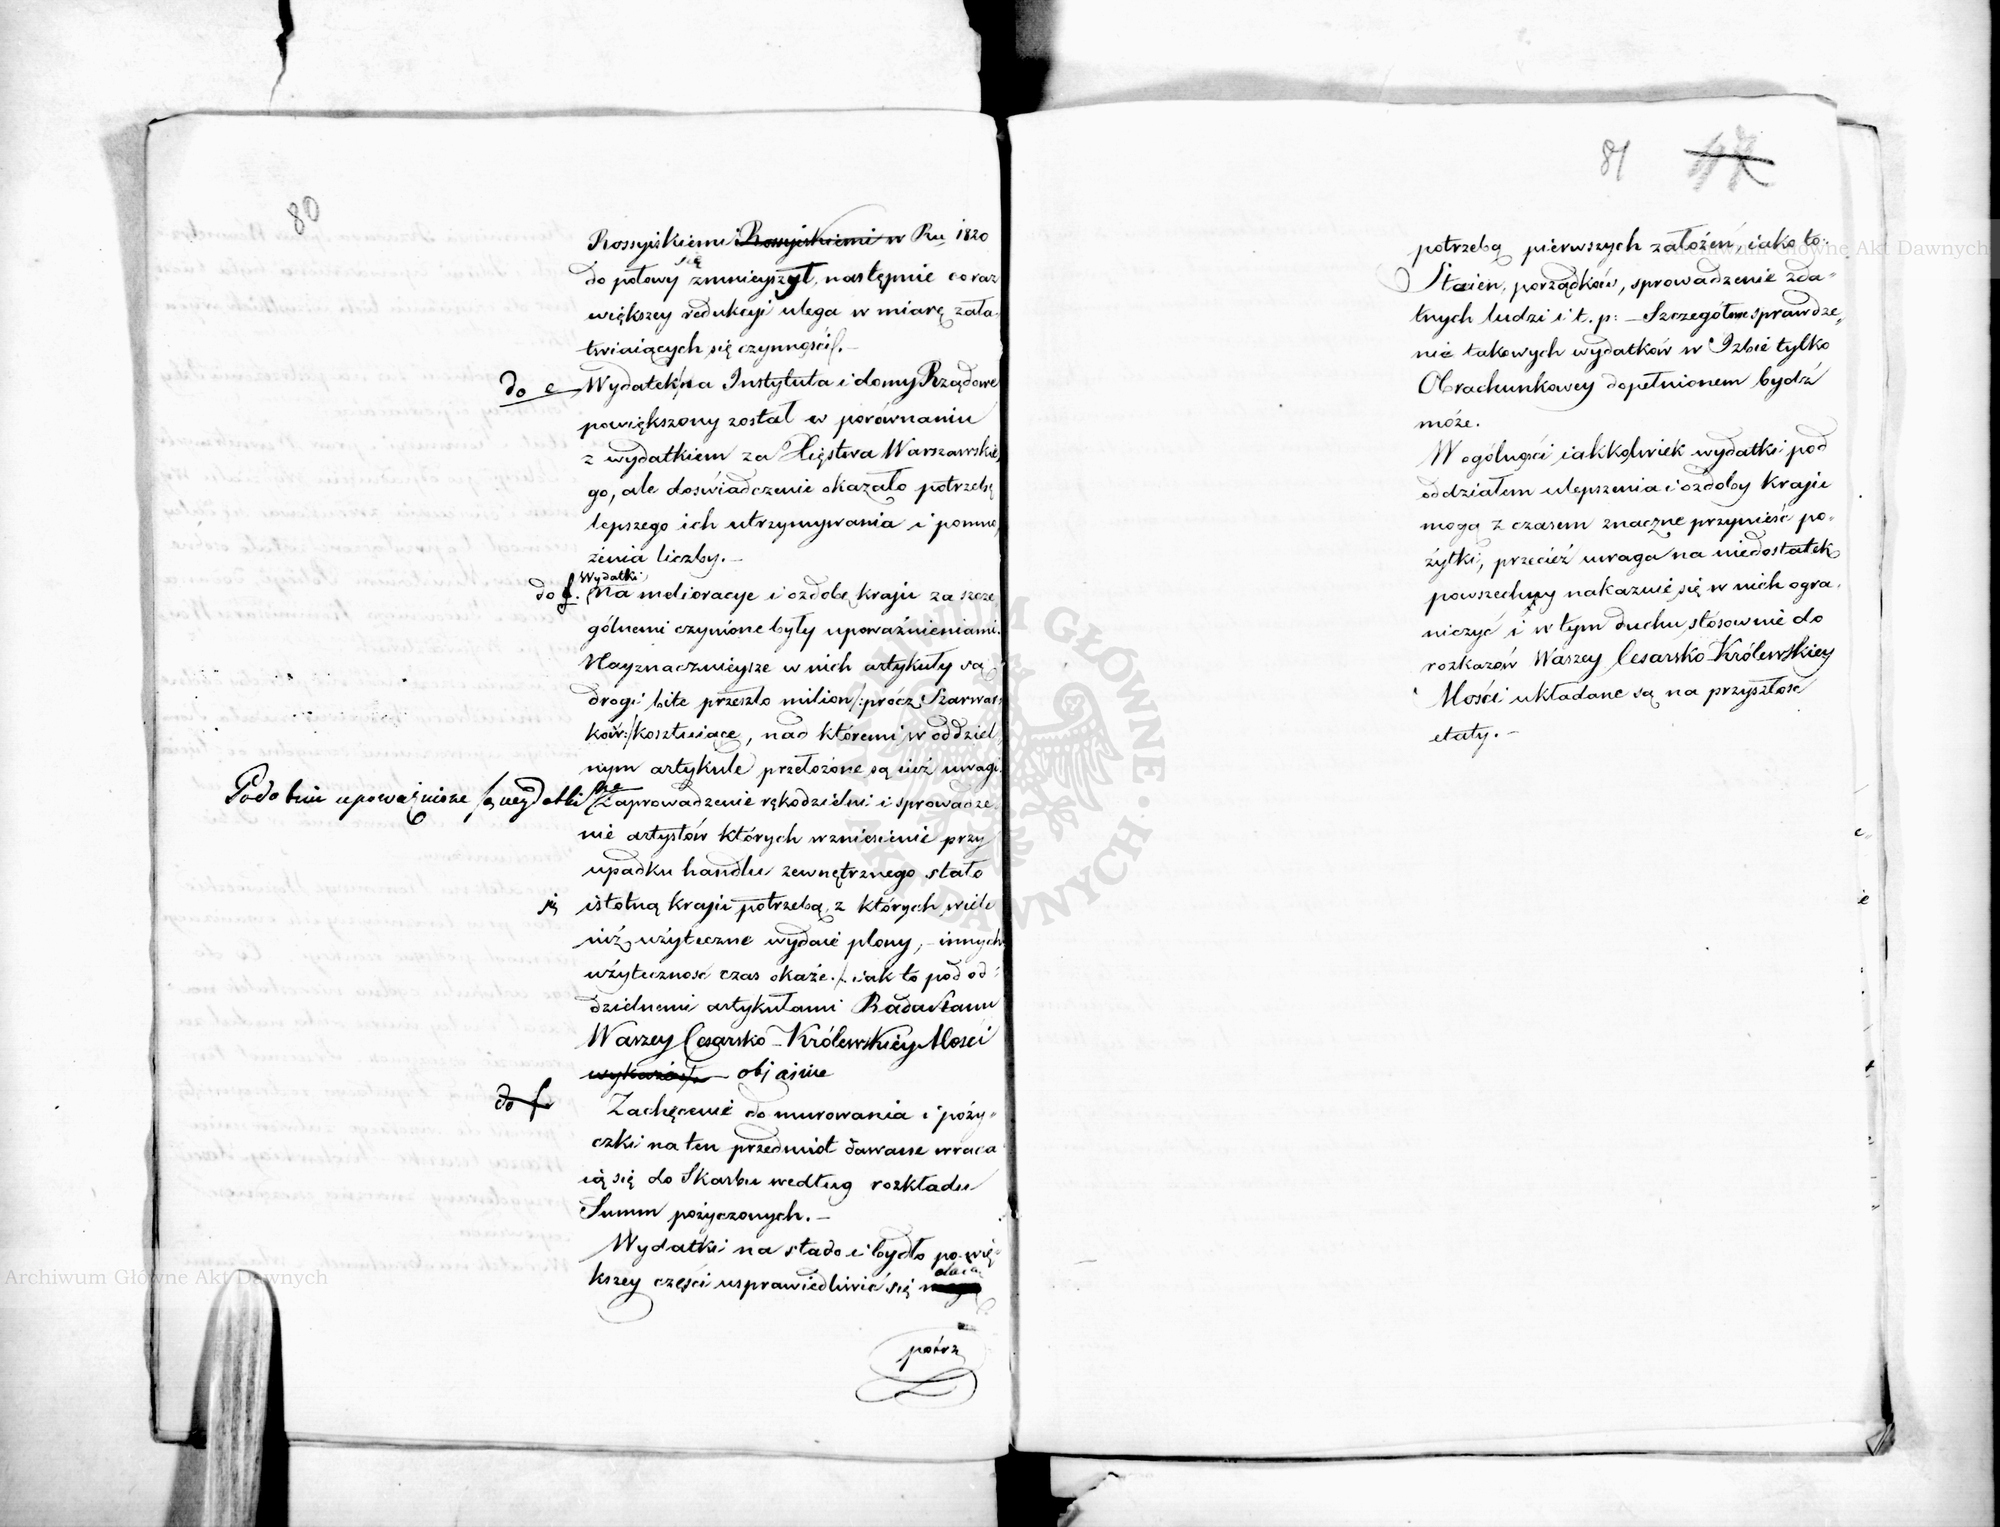 80
Rossyiskiemi Rossyiskiemi w Ru 1820
do połowy się zmnieyszył, następnie coraz
większey redukcyi ulega w miarę zała-
twiaiących się czynności.—
do e Wydatek na Instytuta i domy Rządowe
powiększony został w porównaniu
z wydatkiem za Xięstwa Warszawskie,
go, ale doświadczenie okazało potrzebę
lepszego ich utrzymywania i pomno,
żenia liczby.—
Wydatki
do f. Na melioracye i ozdobę kraju za szcze
gólnemi czynione były upoważnieniami.
Nayznacznieysze w nich artykuły są
drogi bite przeszło milion /:prócz Szarwar-
ków:/ kosztuiące, nad któremi w oddziel,
nym artykule przełożone są iuż uwagi.
Podobnie upoważnione są wydatki na
Zaprowadzenie rękodzielni i sprowadze
nie artystów których wzniesienie przy
upadku handlu zewnętrznego stało
się istotną kraju potrzebą, z których wiele
iuż użyteczne wydaie plony,— innych
użyteczność czas okaże. iak to pod od-
dzielnemi artykułami Rada Stanu
Waszey Cesarsko-Królewskiey Mości
wykazuie obiaśnie
do f
Zachęcenie do murowania i poży-
czki na ten przedmiot dawane wraca
ią się do Skarbu według rozkładu
Summ pożyczonych.—
Wydatki na stado i bydło po wię-
kszey części usprawiedliwić się
potrz
81
potrzebą pierwszych założeń, iako to:
Staien, porządków, sprowadzenie zda-
tnych ludzi i t. p:— Szczegółowe sprawdze,
nie takowych wydatków w Izbie tylko
Obrachunkowey dopełnionem bydź
może.
W ogólności iakkolwiek wydatki pod
oddziałem ulepszenia i ozdoby kraju
mogą z czasem znaczne przynieść po-
żytki, przecież uwaga na niedostatek
powszechny nakazuie się w nich ogra,
niczyć i w tym duchu stósownie do
rozkazów Waszey Cesarsko-Królewskiey
Mości układane są na przyszłość
etaty.—
Archiwum Główne Akt Dawnych
Archiwum Główne Akt Dawnych
ARCHIWUM GŁÓWNE AKT DAWNYCH